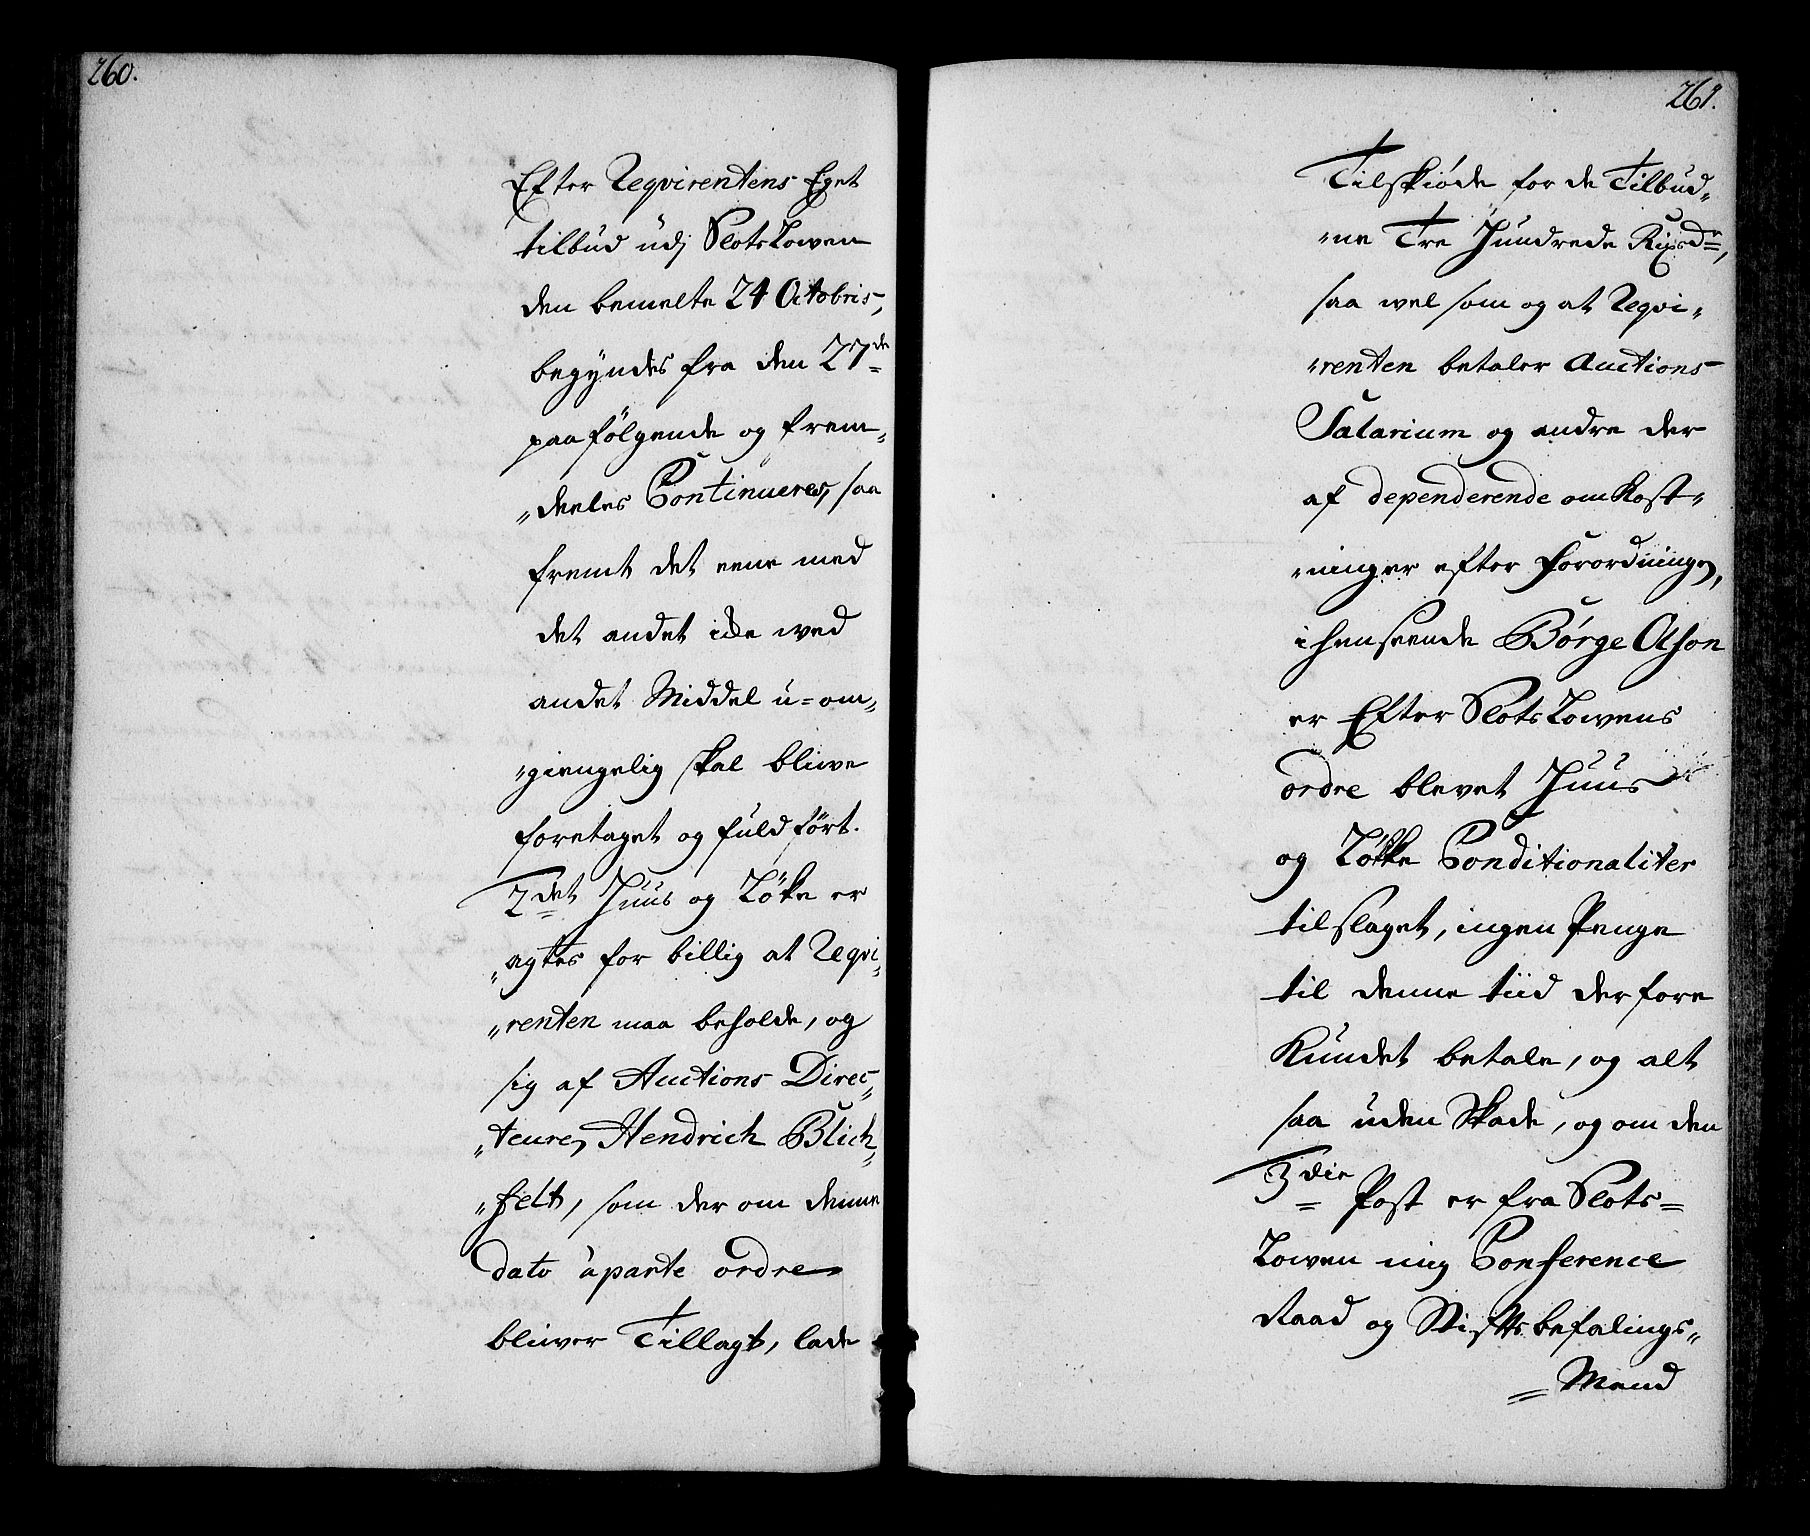 260.
Efter Reqvirentens Eget
tilbud udj SlotsLowen
den bemelte 24 Octobris,
begyndes fra den 27de
paafölgende og frem„
„deeles Continueres, saa
fremt det eene med
det andet icke wed
andet Middel u=om„
„giengelig skal bliwe
foretaget og fuldfört.
2det Juus og Löke er
„agtes for billig at Reqvi„
„renten maa beholde, og
sig af Auctions Direc„
„teuren Hendrich Blich„
„felt, som der om denne
dato aparte ordre
bliwer Tillagt, lade
261.
Tilskiöde for de Tilbud„
„ne Tre Hundrede Rixdr,
saa wel som og at Reqvi„
„renten betaler Auctions
Salarium og andre der
af dependerende omKost„
„ninger efter Forordningen,
ihenseende Börge Olson
er Efter SlotsLowens
ordre blevet Juus
og Lökke Conditionaliter
tilslaget, ingen Penge
til denne tiid derfore
Kundet betale, og alt
saa uden Skade, og om den
3die Post er fra Slots=
Lowen mig Conference
Raad og Stiftsbefalings„
= Mand